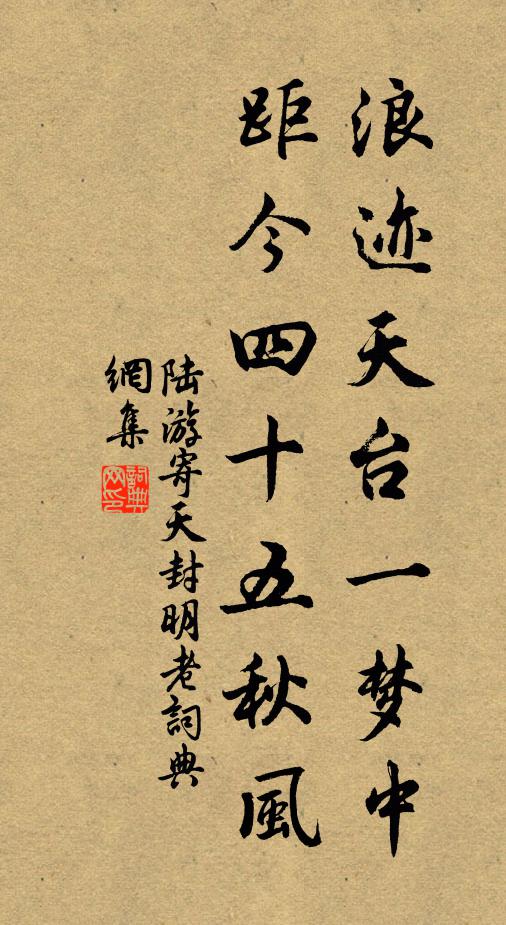 浪迹天台一梦中
距今四十五秋風
陆游寄天封明老詞典
網集
詞典网印